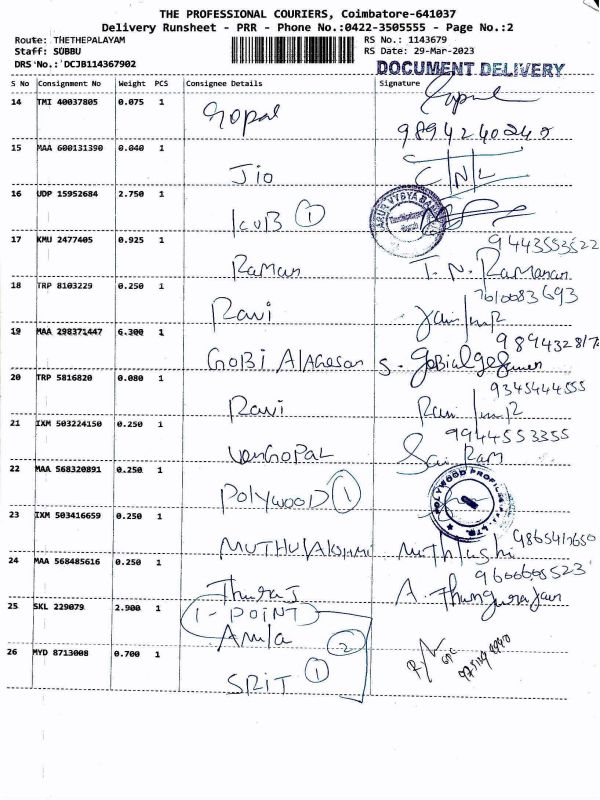 THE PROFESSIONAL COURIERS, Coimbatore-641037
Delivery Runsheet - PRR - Phone No.:0422-3505555 - Page No.:2
Route: THETHEPALAYAM RS No.: 1143679
Staff: SUBBU RS Date: 29-Mar-2023
DRS No.: DCJB114367902 DOCUMENT DELIVERY
S No Consignment No Weight PCS Consignee Details Signature
14 TMI 40037805 0.075 1 Gopal Gopal
9894240240
15 MAA 600131390 0.040 1
Jio
16 UDP 15952684 2.750 1 KVB 1
17 KMU 2477405 0.925 1 9443553522
Raman T. N. Ramanan
18 TRP 8103229 0.250 1 7010083693
Ravi
19 MAA 298371447 6.300 1
GOBI Alagesan S.
20 TRP 5816820 0.080 1 9345444555
Ravi Ravi
21 IXM 503224150 0.250 1 9944553355
VenGOPAL Sai Ram
22 MAA 568320891 0.250 1
POLYWOOD 1 POLYWOOD PROFILES
23 IXM 503416659 0.250 1
24 MAA 568485616 0.250 1
Thuraj A.
25 SKL 229079 2.900 1 1-POINT
Amla 2
26 MYD 8713008 0.700 1
SRIT 1